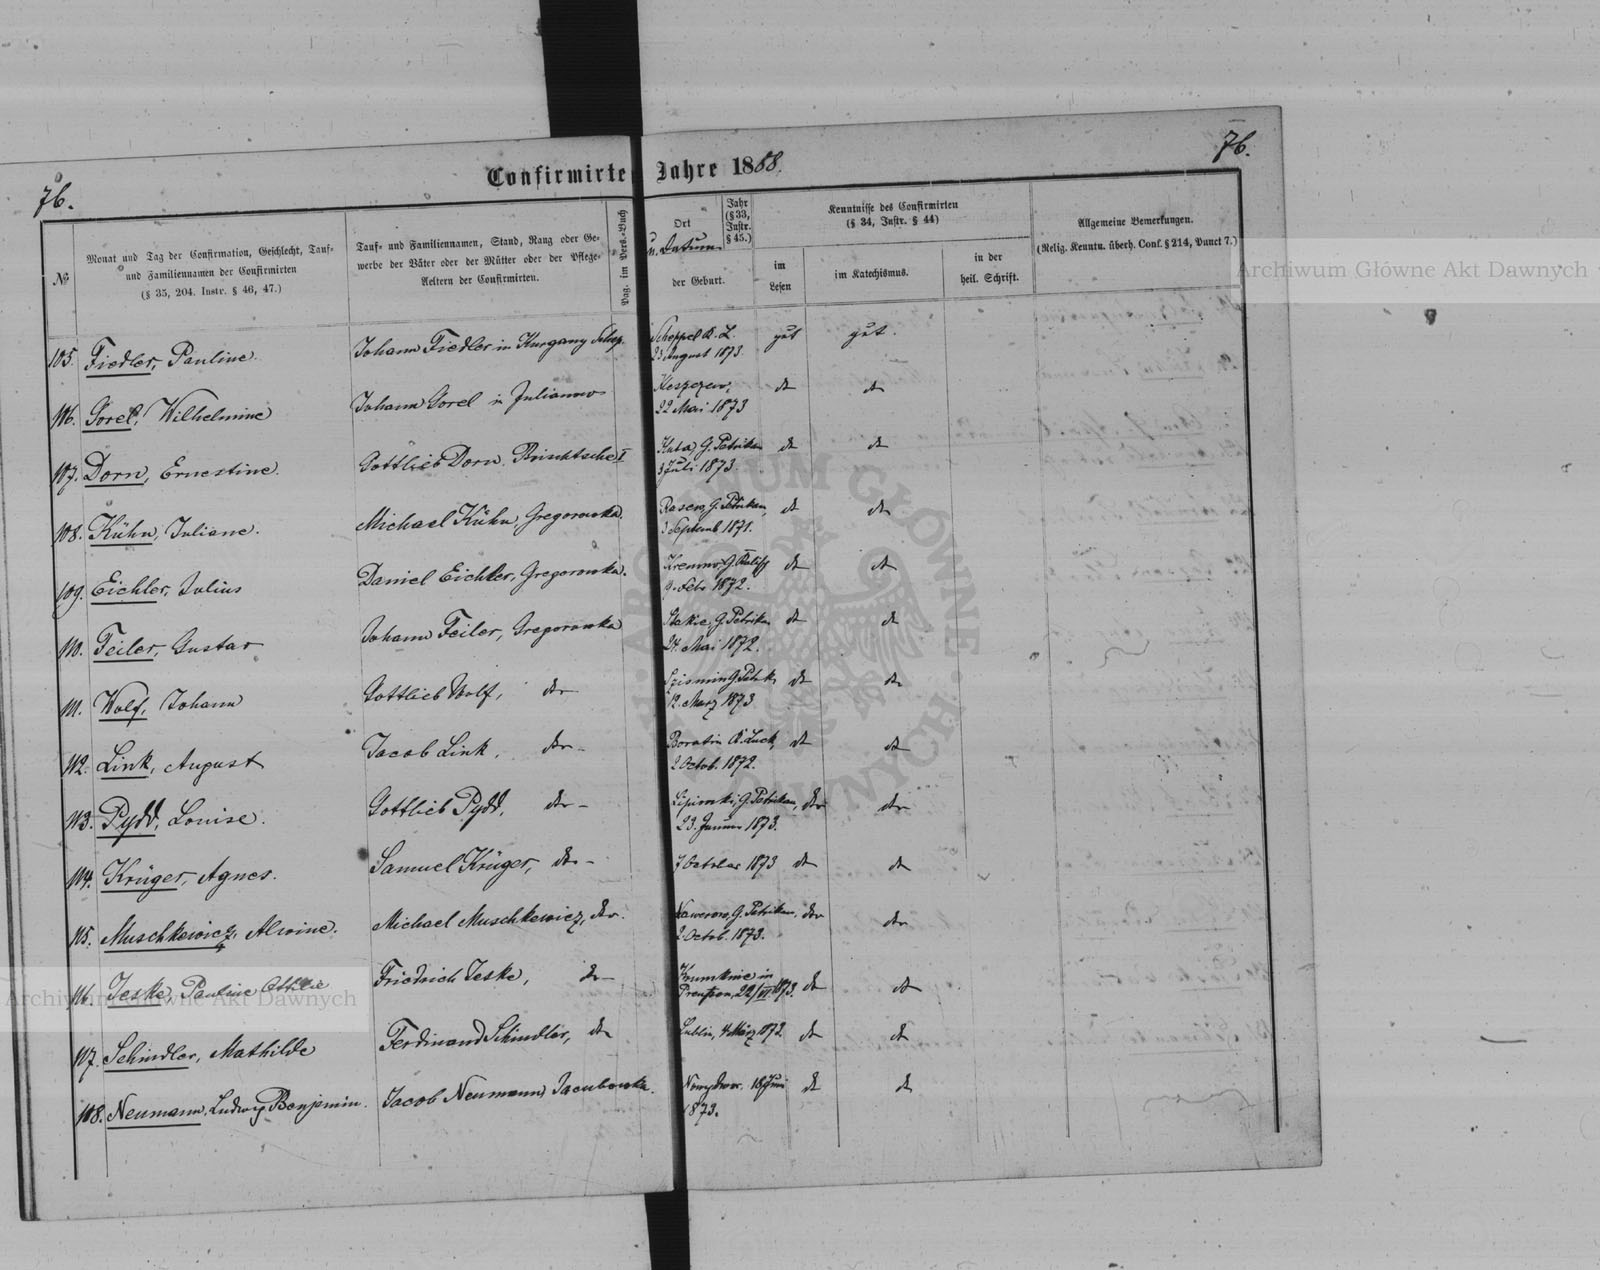 76.
76.
Confirmirte Jahre 1888.
№
Monat und Tag der Confirmation, Geschlecht, Tauf-
und Familiennamen der Confirmirten
(§ 35, 204. Instr. § 46, 47.)
Tauf- und Familiennamen, Stand, Rang oder Ge-
werbe der Väter oder der Mütter oder der Pflege-
Aeltern der Confirmirten.
Pag. im Pers.-Buch
Ort
u. Datum
der Geburt.
Jahr
(§ 33,
Instr.
§ 45.)
Kenntnisse des Confirmirten
(§ 34, Instr. § 44)
im
Lesen
im Katechismus.
in der
heil. Schrift.
Allgemeine Bemerkungen.
(Relig. Kenntn. überh. Conf. § 214, Punct 7.)
105. Fiedler, Pauline. Johann Fiedler in Kurgany
23 August 1873. gut gut.
106. Gorel, Wilhelmine Johann Gorel in Julianow
22 Mai 1873 do do
107. Dorn, Ernestine. Gottlieb Dorn. Brischtsche I Huta, G. Petrikau
3 Juli 1873. do do
108. Kühn, Juliane. Michael Kühn, Gregorowka. G. Petrikau,
Septemb. 1871. do do
109. Eichler, Julius Daniel Eichler, Gregorowka. G. Kalisch
9. Febr 1872. do do
110. Feiler, Gustav Johann Feiler, Gregorowka G. Petrikau
24. Mai 1872. do do
111. Wolf, Johann Gottlieb Wolf, do
12. März 1873 do do
112. Link, August Jacob Link, do- Boratin K. Luck,
2 Octob. 1872. do do
113. Pydd, Louise. Gottlieb Pydd, do- G. Petrikau,
23. Januar 1873. do do
114. Krüger, Agnes. Samuel Krüger, do- 7 October 1873 do do
115. Muschkewicz, Alwine. Michael Muschkewicz, do. G. Petrikau,
2 Octob. 1873. do do
116. Jeske, Pauline Ottilie Friedrich Jeske, do- in
Preußen, 22/VI 1873. do do
117. Schindler, Mathilde Ferdinand Schindler, do Lublin, 4 März 1872 do do
118. Neumann, Ludwig Benjamin. Jacob Neumann, Jacubowka. Nowydwor. 18 Juni
1873. do do
Archiwum Główne Akt Dawnych
Archiwum Główne Akt Dawnych
ARCHIWUM GŁÓWNE AKT DAWNYCH